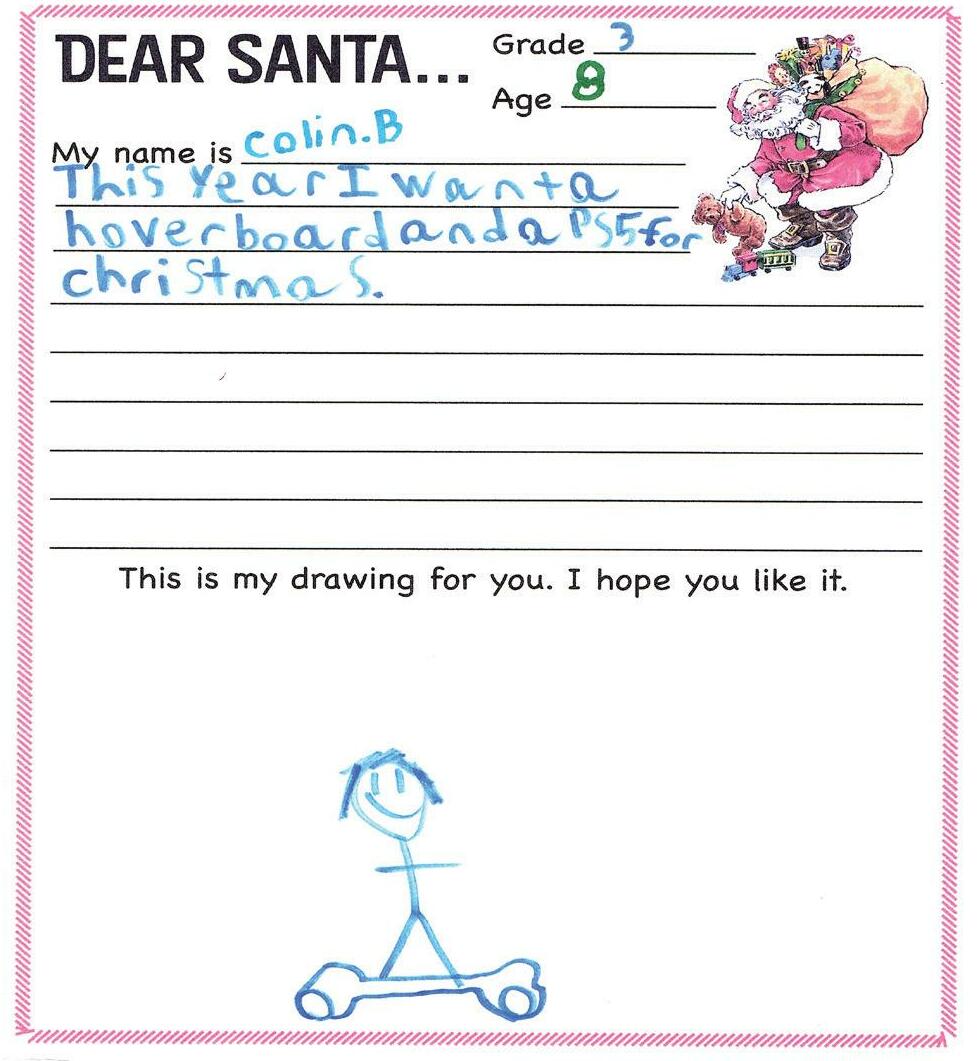 DEAR SANTA...
Grade 3
Age 8
My name is colin.B
This year I want a
hoverboard and a PS5 for
christmas.
This is my drawing for you. I hope you like it.